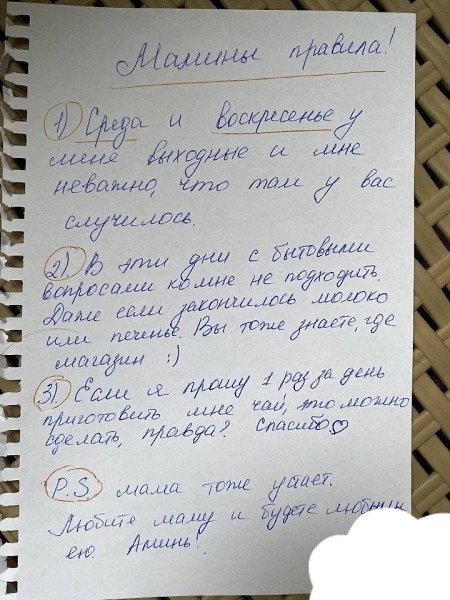 Мамины правила!
1) Среда и воскресенье у
меня выходные и мне
неважно, что там у вас
случилось.
2) В эти дни с бытовыми
вопросами ко мне не подходить.
Даже если закончилось молоко
или печенье. Вы тоже знаете, где
магазин :)
3) Если я прошу 1 раз за день
приготовить мне чай, это можно
сделать, правда? Спасибо♡
P.S мама тоже устает.
Любите маму и будете любимы
ею. Аминь!